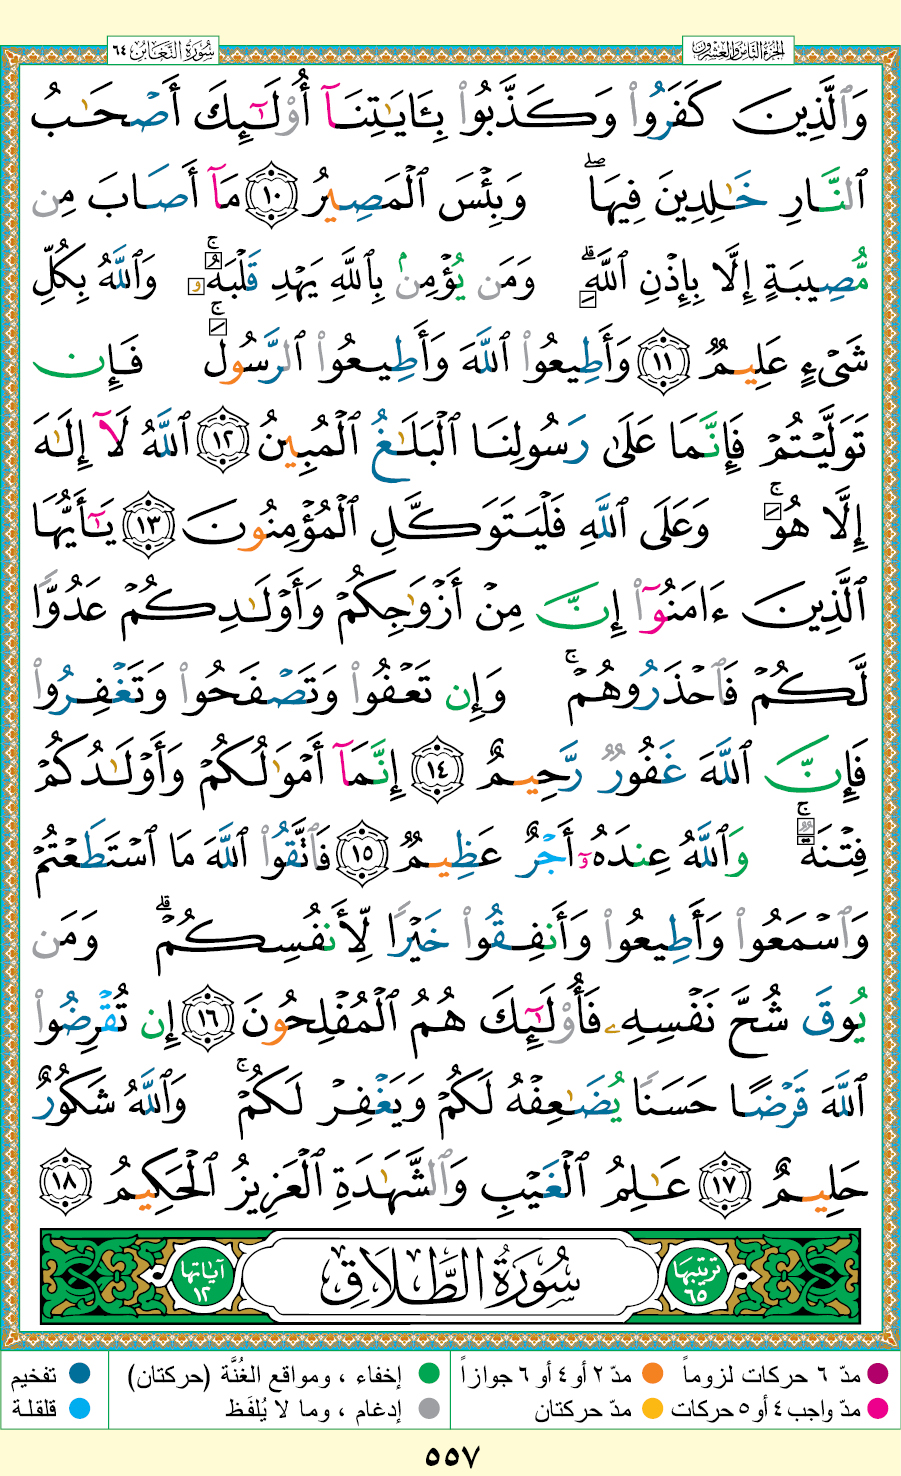 سُورَةُ التَّغَابُن ٦٤
الجُزءُ الثَّامِن وَالعِشرُون
وَٱلَّذِينَ كَفَرُوا۟ وَكَذَّبُوا۟ بِـَٔايَـٰتِنَآ أُو۟لَـٰٓئِكَ أَصْحَـٰبُ
ٱلنَّارِ خَـٰلِدِينَ فِيهَا ۖ وَبِئْسَ ٱلْمَصِيرُ ١٠ مَآ أَصَابَ مِن
مُّصِيبَةٍ إِلَّا بِإِذْنِ ٱللَّهِ ۗ وَمَن يُؤْمِنۢ بِٱللَّهِ يَهْدِ قَلْبَهُۥ ۚ وَٱللَّهُ بِكُلِّ
شَىْءٍ عَلِيمٌ ١١ وَأَطِيعُوا۟ ٱللَّهَ وَأَطِيعُوا۟ ٱلرَّسُولَ ۚ فَإِن
تَوَلَّيْتُمْ فَإِنَّمَا عَلَىٰ رَسُولِنَا ٱلْبَلَـٰغُ ٱلْمُبِينُ ١٢ ٱللَّهُ لَآ إِلَـٰهَ
إِلَّا هُوَ ۚ وَعَلَى ٱللَّهِ فَلْيَتَوَكَّلِ ٱلْمُؤْمِنُونَ ١٣ يَـٰٓأَيُّهَا
ٱلَّذِينَ ءَامَنُوٓا۟ إِنَّ مِنْ أَزْوَٰجِكُمْ وَأَوْلَـٰدِكُمْ عَدُوًّا
لَّكُمْ فَٱحْذَرُوهُمْ ۚ وَإِن تَعْفُوا۟ وَتَصْفَحُوا۟ وَتَغْفِرُوا۟
فَإِنَّ ٱللَّهَ غَفُورٌ رَّحِيمٌ ١٤ إِنَّمَآ أَمْوَٰلُكُمْ وَأَوْلَـٰدُكُمْ
فِتْنَةٌ ۚ وَٱللَّهُ عِندَهُۥٓ أَجْرٌ عَظِيمٌ ١٥ فَٱتَّقُوا۟ ٱللَّهَ مَا ٱسْتَطَعْتُمْ
وَٱسْمَعُوا۟ وَأَطِيعُوا۟ وَأَنفِقُوا۟ خَيْرًا لِّأَنفُسِكُمْ ۗ وَمَن
يُوقَ شُحَّ نَفْسِهِۦ فَأُو۟لَـٰٓئِكَ هُمُ ٱلْمُفْلِحُونَ ١٦ إِن تُقْرِضُوا۟
ٱللَّهَ قَرْضًا حَسَنًا يُضَـٰعِفْهُ لَكُمْ وَيَغْفِرْ لَكُمْ ۚ وَٱللَّهُ شَكُورٌ
حَلِيمٌ ١٧ عَـٰلِمُ ٱلْغَيْبِ وَٱلشَّهَـٰدَةِ ٱلْعَزِيزُ ٱلْحَكِيمُ ١٨
ترتيبها ٦٥ سُورَةُ الطَّلَاقِ آياتها ١٢
مدّ ٦ حركات لزوماً مدّ ٢ أو ٤ أو ٦ جوازاً إخفاء ، ومواقع الغُنَّة (حركتان) تفخيم
مدّ واجب ٤ أو ٥ حركات مدّ حركتان إدغام ، وما لا يُلفَظ قلقلة
٥٥٧